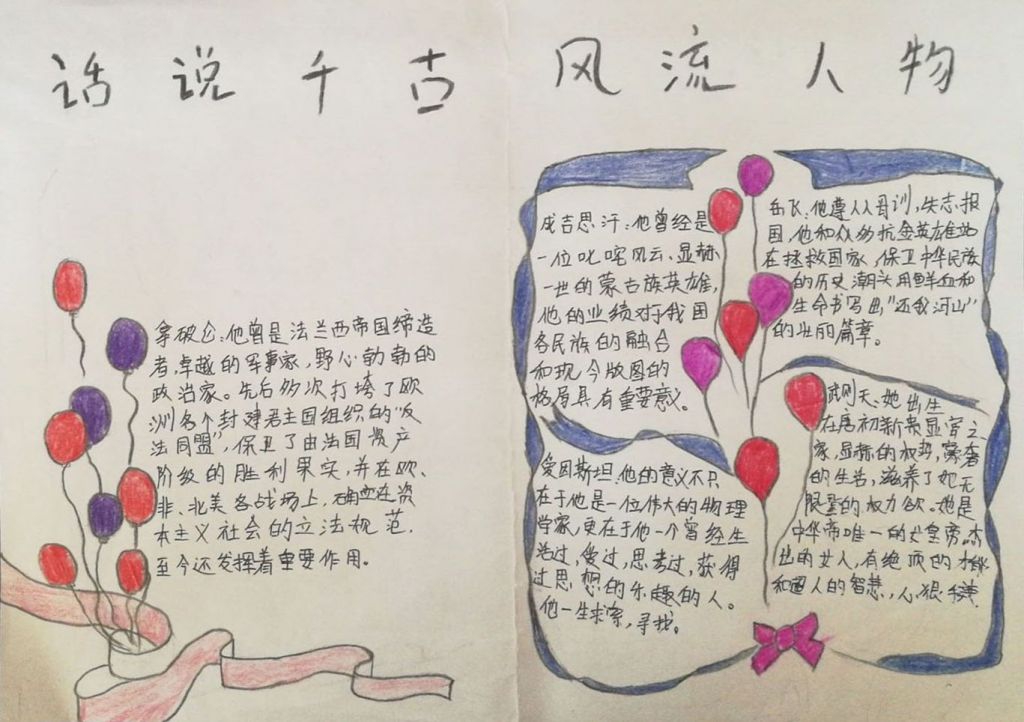 话说千古风流人物
拿破仑:他曾是法兰西帝国缔造
者,卓越的军事家,野心勃勃的
政治家。先后多次打垮了欧
洲各个封建君主国组织的“反
法同盟”,保卫了由法国资产
阶级的胜利果实,并在欧、
非、北美各战场上,确立在资
本主义社会的立法规范,
至今还发挥着重要作用。
成吉思汗:他曾经是
一位叱咤风云、显赫
一世的蒙古族英雄,
他的业绩对我国
各民族的融合
和现今版图的
格局具有重要意义。
岳飞:他遵从母训,失志报
国,他和众多抗金英雄站
在拯救国家、保卫中华民族
的历史潮头用鲜血和
生命书写出“还我河山”
的壮丽篇章。
爱因斯坦:他的意义不只
在于他是一位伟大的物理
学家,更在于他一个曾经生
活过,爱过,思考过,获得
过思想的乐趣的人。
他一生求索,寻找。
武则天:她出生
在唐初新贵显宦之
家,显赫的权势,豪奢
的生活,滋养了她无
限量的权力欲。她是
中华帝唯一的女皇帝。杰
出的女人,有绝顶的才华
和过人的智慧,心狠手